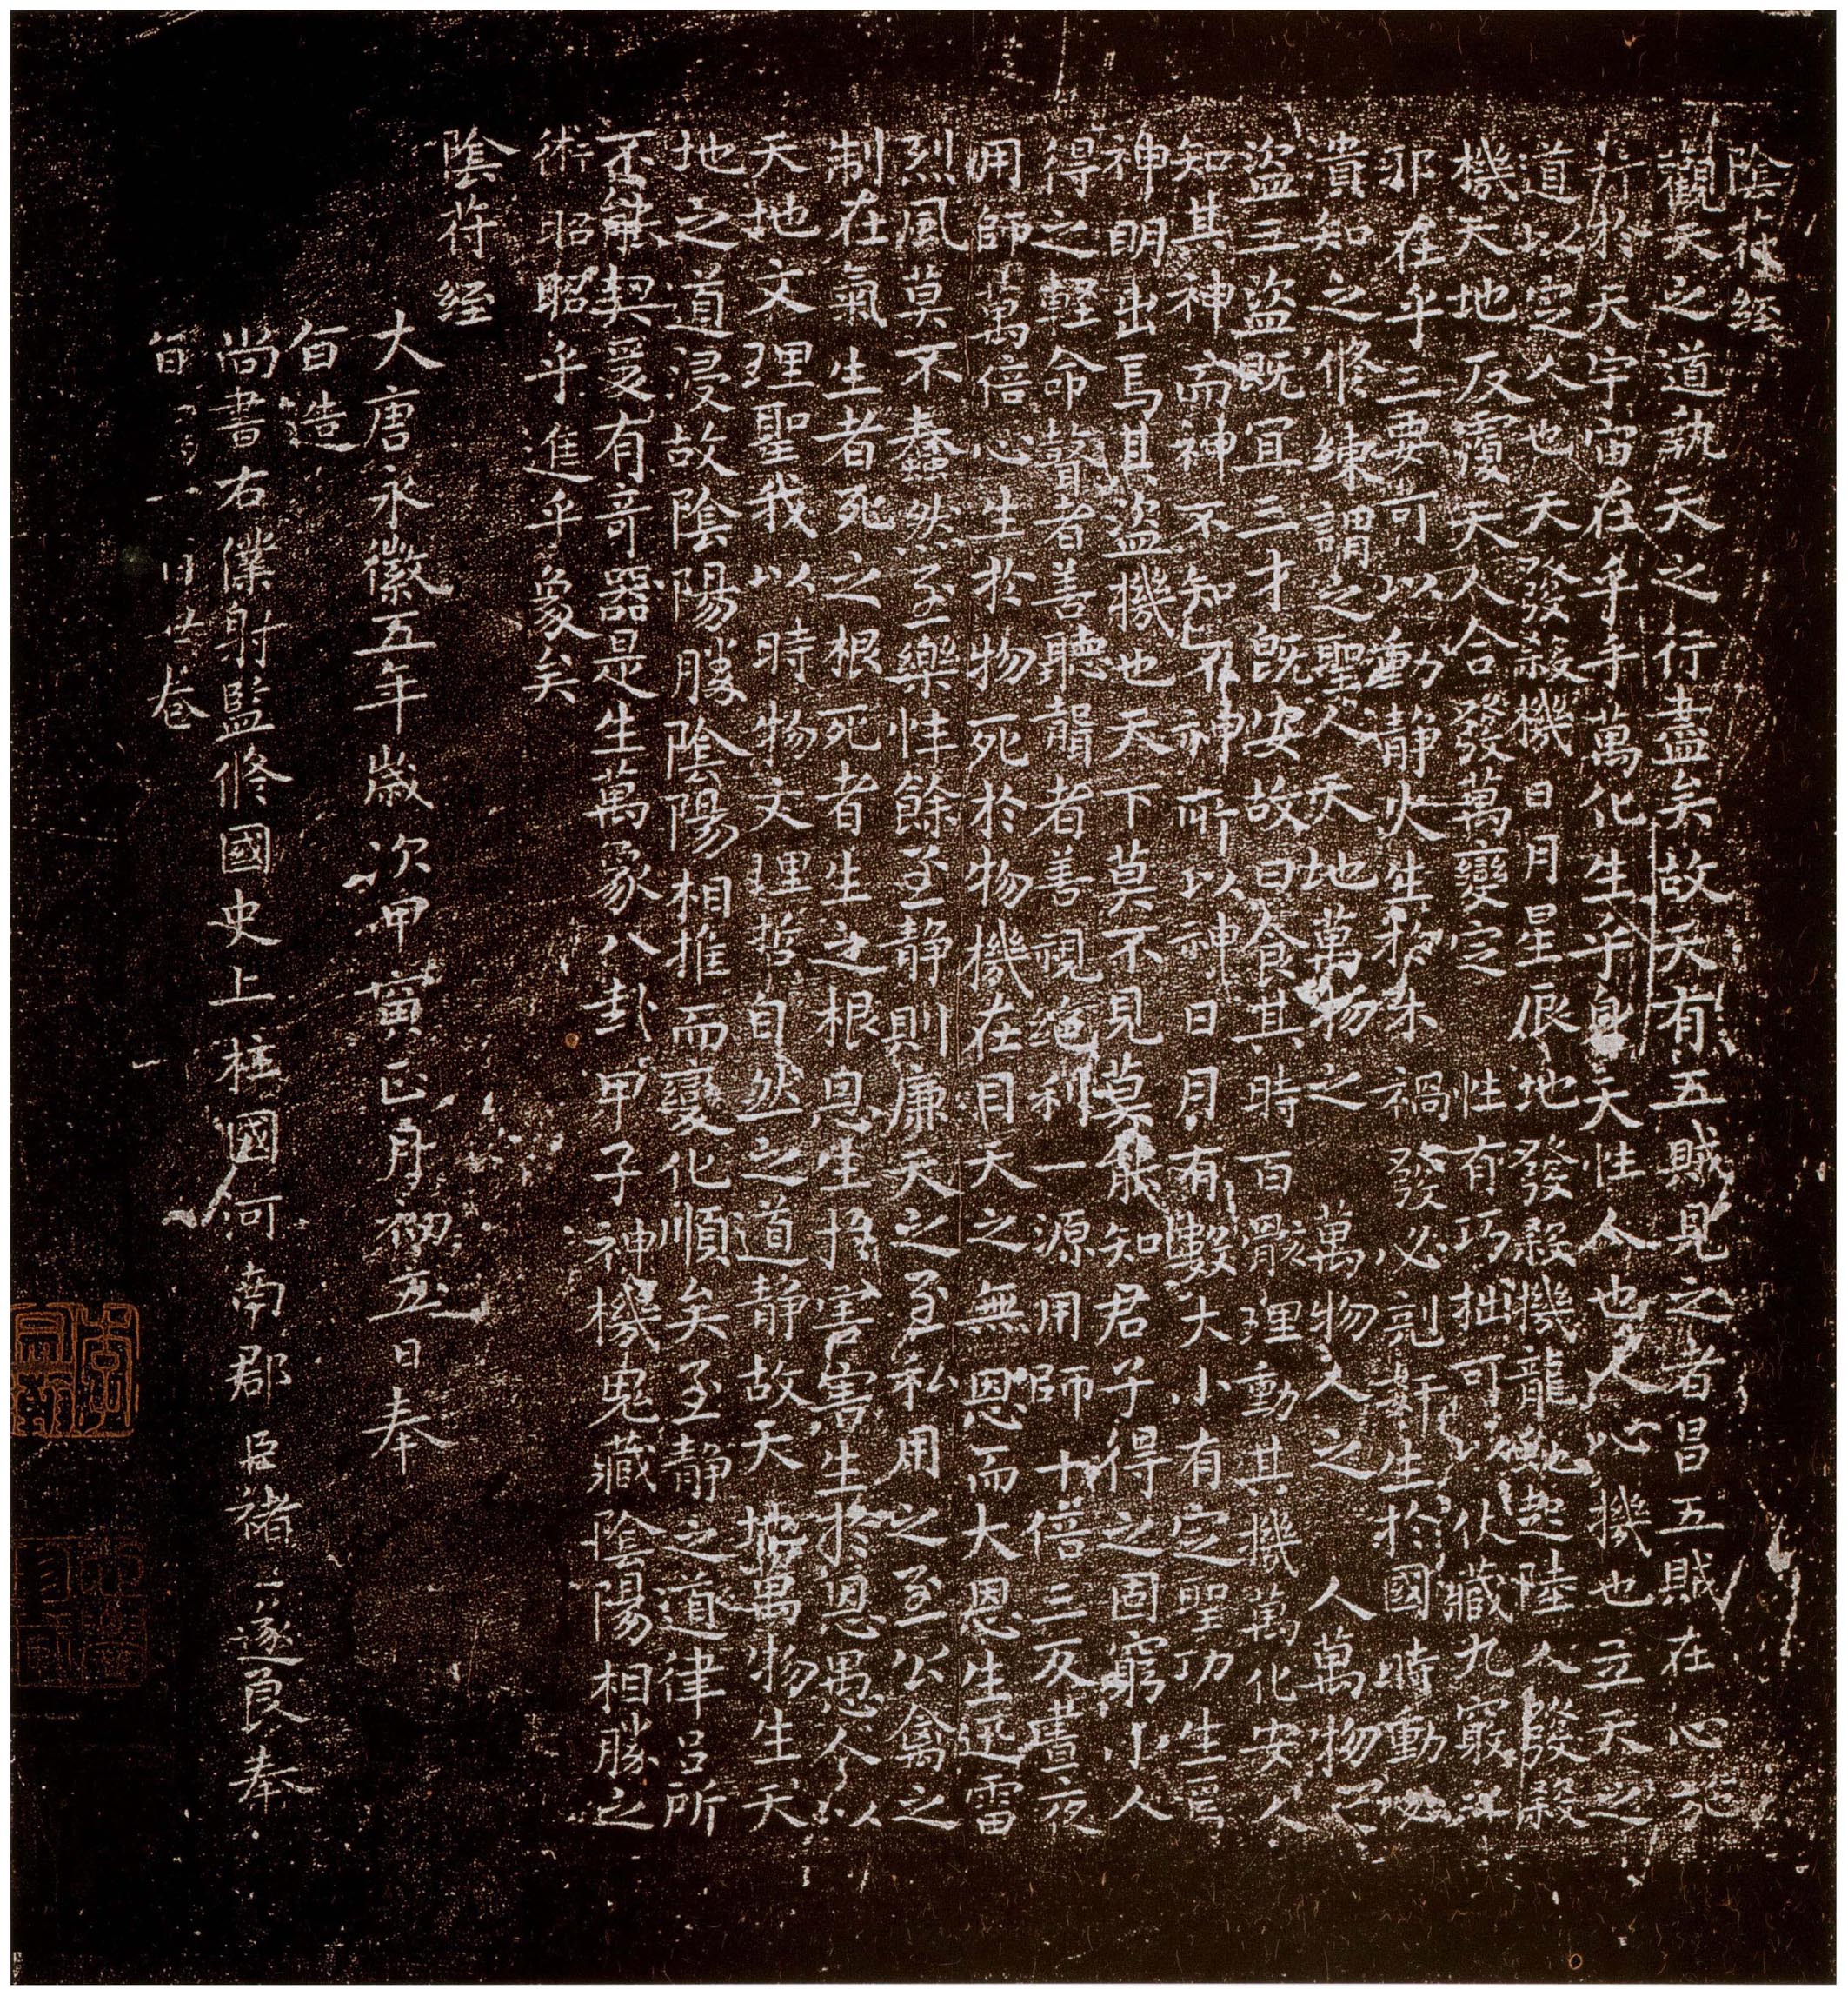 陰符經
觀天之道執天之行盡矣故天有五賊見之者昌五賊在心施
行於天宇宙在乎手萬化生乎身天性人也人心機也立天之
道以定人也天發殺機日月星辰地發殺機龍虵起陸人發殺
機天地反覆天人合發萬變定性有巧拙可以伏藏九竅之
邪在乎三要可以動靜火生於木禍發必剋姧生於國時動必
潰知之修練謂之聖人天地萬物之萬物人之人萬物之
盜三盜既宜三才既安故曰食其時百骸理動其機萬化安人
知其神而神不知不神所以神日月有數大小有定聖功生焉
神明出焉其盜機也天下莫不見莫能知君子得之固窮小人
得之輕命瞽者善聽聾者善視絕利一源用師十倍三反晝夜
用師萬倍心生於物死於物機在目天之無恩而大恩生迅雷
烈風莫不蠢然至樂性餘至靜則廉天之至私用之至公禽之
制在氣生者死之根死者生之根恩生於害害生於恩愚人以
天地文理聖我以時物文理哲自然之道靜故天地萬物生天
地之道浸故陰陽勝陰陽相推而變化順矣至靜之道律呂所
不能契爰有奇器是生萬象八卦甲子神機鬼藏陰陽相勝之
術昭昭乎進乎象矣
陰符經
大唐永徽五年歲次甲寅正月初五日奉
旨造
尚書右僕射監修國史上柱國河南郡臣褚遂良奉
旨 一 卷